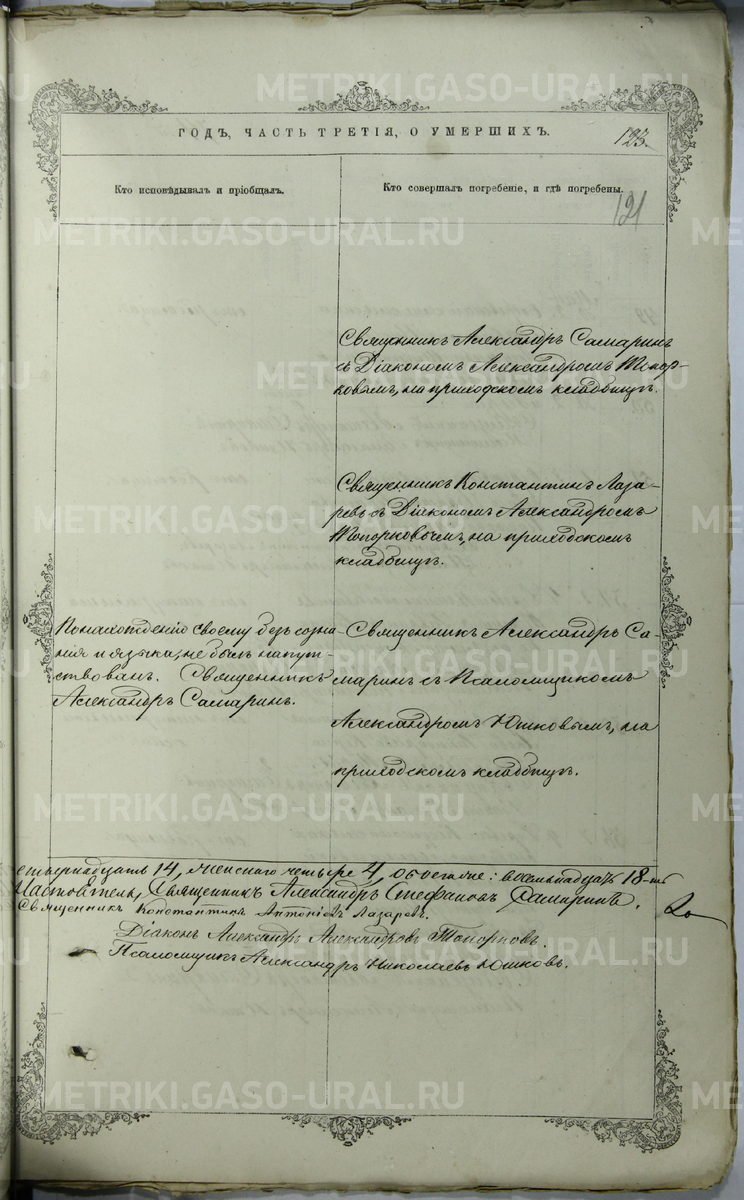 METRIKI.GASO-URAL.RU
ГОДЪ, ЧАСТЬ ТРЕТІЯ, О УМЕРШИХЪ.
123.
Кто исповѣдывалъ и пріобщалъ.
Кто совершалъ погребеніе, и гдѣ погребены.
121
Священникъ Александръ Самаринъ
съ Діакономъ Александромъ Топор-
ковымъ, на приходскомъ кладбищѣ.
Священникъ Константинъ Лаза-
ревъ съ Діакономъ Александромъ
Топорковымъ, на приходскомъ
кладбищѣ.
По нахожденію своему безъ созна-
нія и языка, не былъ напут-
ствованъ. Священникъ
Александръ Самаринъ.
Священникъ Александръ Са-
маринъ съ Псаломщикомъ
Александромъ Юшковымъ, на
приходскомъ кладбищѣ.
етырнадцать 14, женскаго четыре 4, обоего же: восемнадцать 18-ть
Настоятель, Священникъ Александръ Стефановъ Самаринъ.
Священникъ Константинъ Антоніевъ Лазаревъ.
Діаконъ Александръ Александровъ Топорковъ.
Псаломщикъ Александръ Николаевъ Юшковъ.